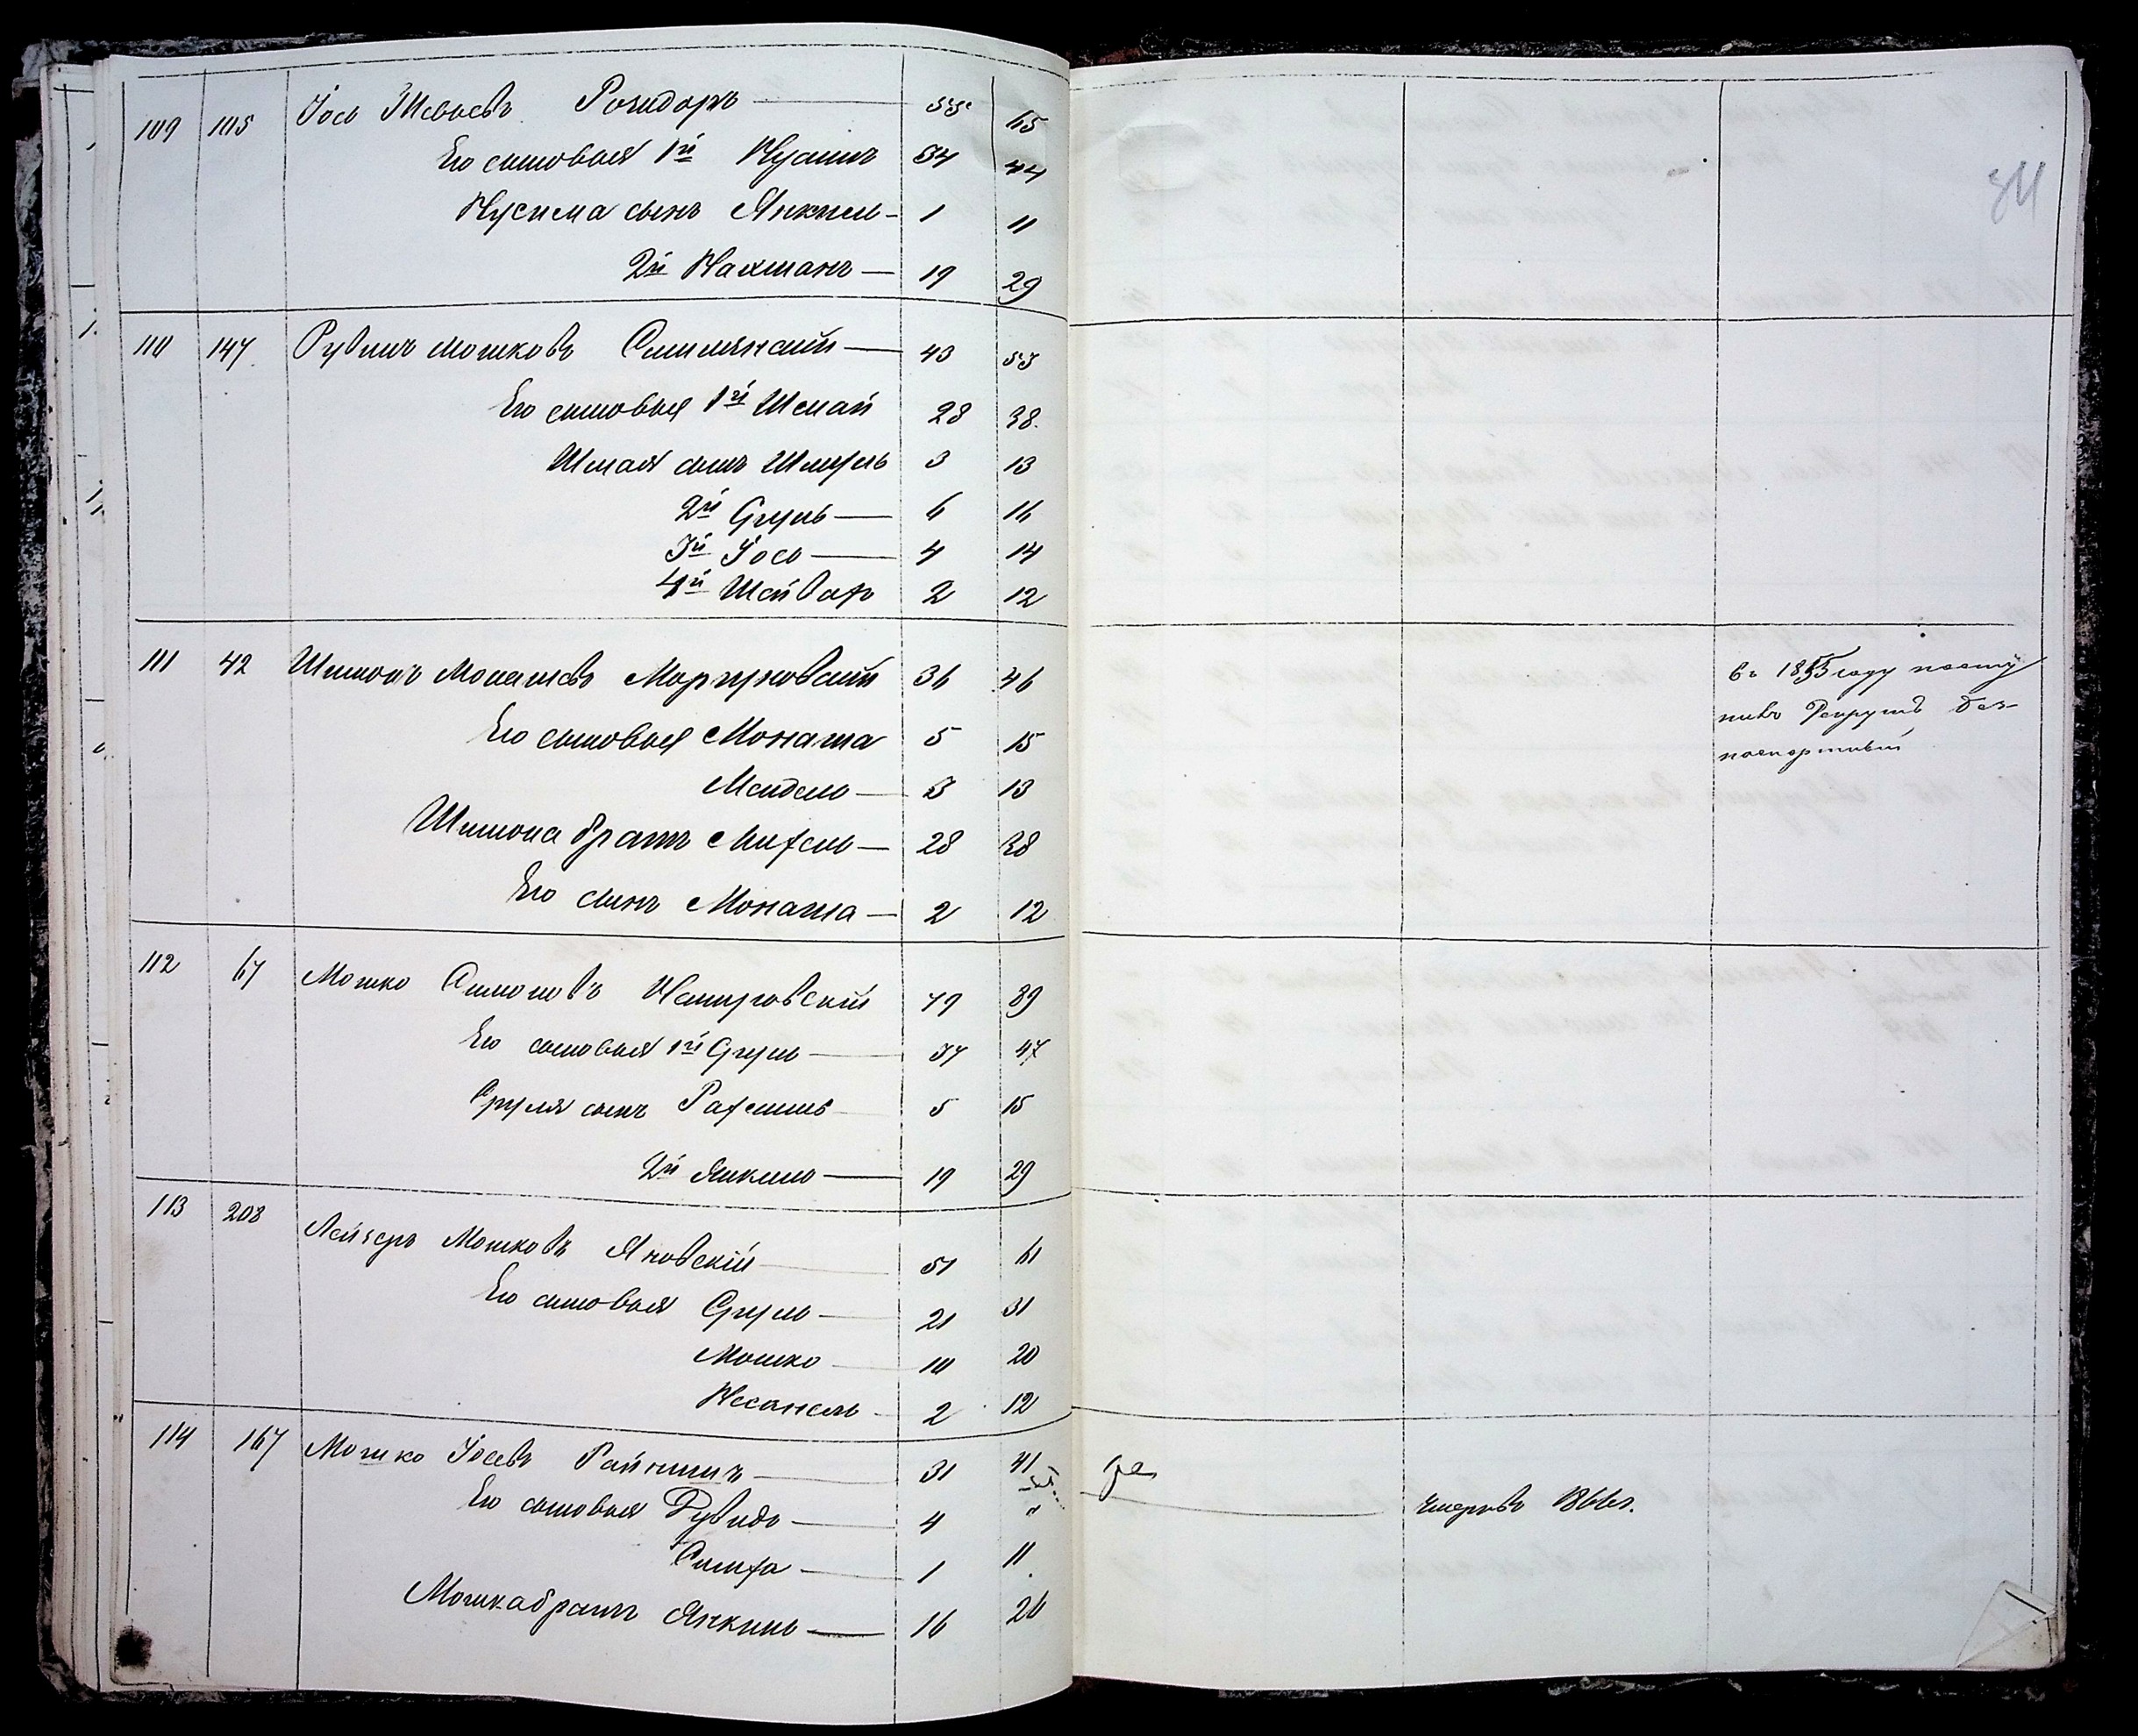 311
109 105 Іось Шевыевъ — 55 65
Его сыновья 1й Нусимъ 34 44
Нусима сынъ Янкель — 1 11
2й Нахманъ — 19 29
110 147 Рувинъ Мошковъ Смилянскій — 43 53
Его сыновья 1й Шмай 28 38
Шмая сынъ Шмуль 3 13
2й Сруль — 6 16
3й Іось — 4 14
4й 2 12
111 42 Шимонъ Монашевъ 36 46
въ 1855 году посту
пивъ Рекрутъ Без-
паспортный
Его сыновья Монаша 5 15
Мендель — 3 13
Шимона братъ Михель — 28 38
Его сынъ Монаша — 2 12
112 67 Мошко Симоновъ 79 89
Его сыновья 1й Сруль — 37 47
Сруля сынъ Рахмиль 5 15
2й Янкель — 19 29
113 208 Лейзеръ Мошковъ Яновскій — 51 61
Его сыновья Сруль — 21 31
Мошко — 10 20
Несанель — 2 12
114 167 Мошко Іосевъ — 31 41
Его сыновья Рувидъ — 4 "
умеръ въ 1866 г.
Симха — 1 11
Мошка братъ Янкель — 16 26